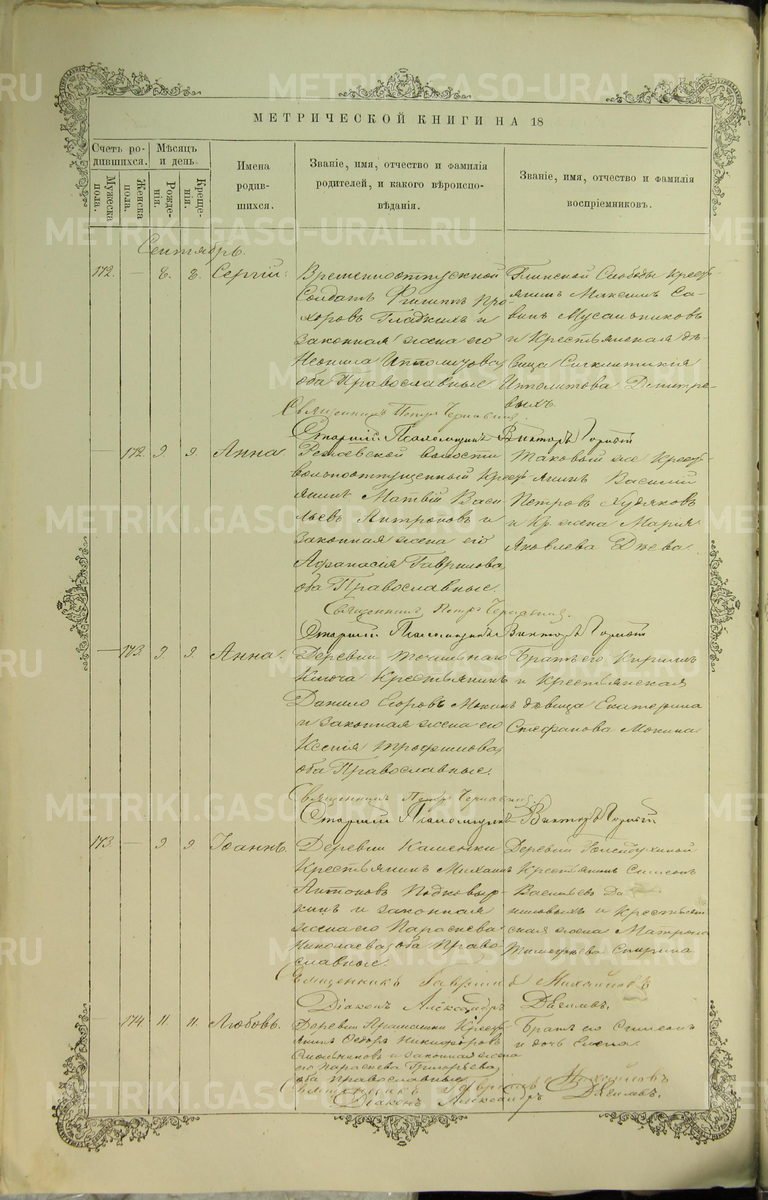 МЕТРИЧЕСКОЙ КНИГИ НА 18
Счетъ родившихся.
Мужеска пола.
Женска пола.
Мѣсяцъ и день.
Рожденія.
Крещенія.
Имена родившихся.
Званіе, имя, отчество и фамилія родителей, и какого вѣроисповѣданія.
Званіе, имя, отчество и фамилія воспріемниковъ.
Сентябрь.
172. — 8. 8. Сергій.
Временноотпускной
Солдатъ Филиппъ Про-
хоровъ Гладкихъ и
законная жена его
Неонила Ипполитова,
оба Православные
Глинской Слободы Крест-
янинъ Максимъ Са-
винъ Мусальниковъ
и Крестьянская дѣ-
вица Синклитикія
Ипполитова Дмитре-
выхъ.
Священникъ Петръ
Старшій Псаломщикъ Викторъ
— 172. 9. 9. Анна.
Режевской волости
вольноотпущенный Крест-
янинъ Матвѣй Васи-
льевъ Антроповъ и
законная жена его
Афанасія Гаврилова,
оба Православные.
Таковый же Крест-
янинъ Василій
Петровъ Худяковъ
и Кр. жена Марія
Яковлева
Священникъ Петръ
Старшій Псаломщикъ Викторъ
— 173 9. 9. Анна.
Деревни Точильнаго
Ключа Крестьянинъ
Данило Егоровъ Мокинъ
и законная жена его
Ксенія Трофимова,
оба Православные.
Братъ его Кириллъ
и Крестьянская
дѣвица Екатерина
Стефанова Мокина
Священникъ Петръ
Старшій Псаломщикъ Викторъ
173. — 9 9 Іоаннъ.
Деревни Каменки
Крестьянинъ Михаилъ
Антоновъ Подковыр-
кинъ и законная
жена его Параскева
Николаева, оба Право-
славные.
Деревни
Крестьянинъ Симеонъ
Васильевъ Да-
ниловыхъ и Крестьян-
ская жена Матрона
Тимофѣева
Священникъ Гавріилъ Михайловъ
Діаконъ Александръ
— 174. 11. 11. Любовь.
Деревни Крест-
янинъ Ѳедоръ Никифоровъ
и законная жена
его Параскева Григорьева,
оба Православные
Братъ его Симеонъ
и дочь
Священникъ Гавріилъ Михайловъ
Діаконъ Александръ
METRIKI.GASO-URAL.RU